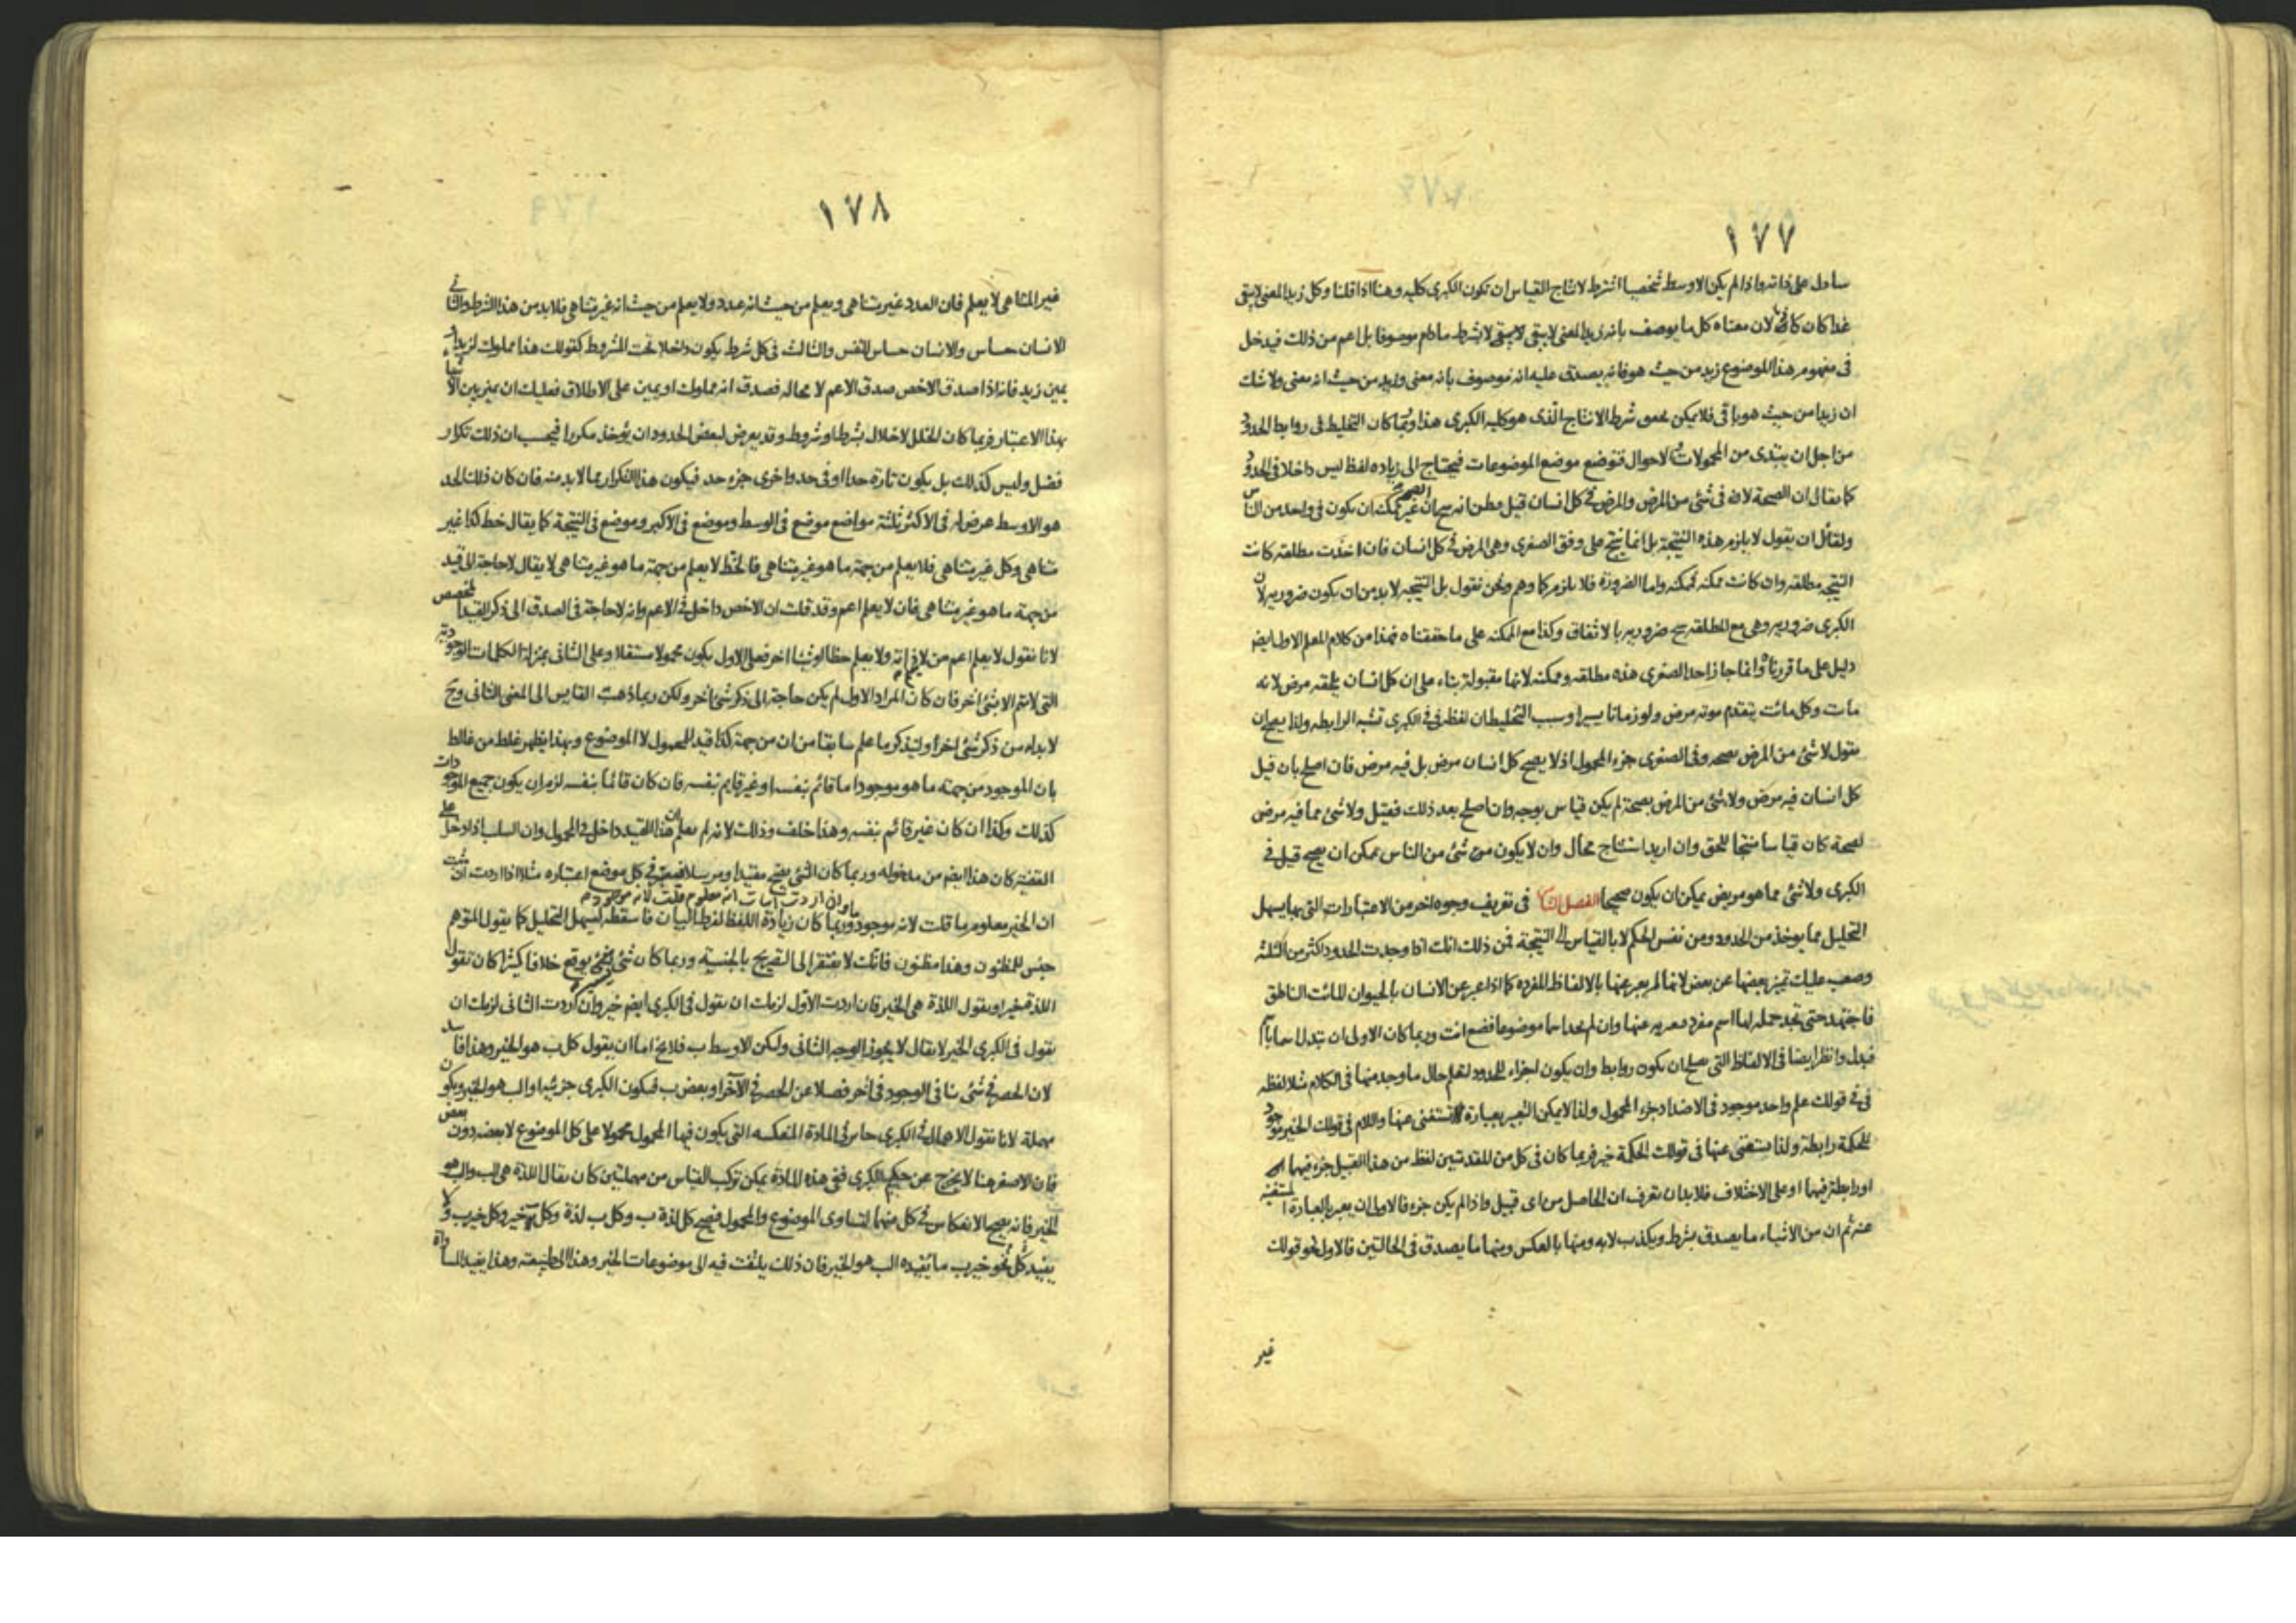 ١٧٧
سا دل على ذاته واذا لم يكن الاوسط شخصيا اشترط لانتاج القياس ان تكون الكبرى كليه وهنا اذا قلنا وكل زيد المغنى لا يبقى
غدا كان كاذبا لان معناه كل ما يوصف بانه زيد المغنى لا يبقى لا يبقى لا بشرط مادام موصوفا بل اعم من ذلك فيدخل
فى مفهوم هذا الموضوع زيد من حيث هو فانه يصدق عليه انه موصوف بانه مغنى وليد من حيث انه مغنى ولا شك
ان زيدا من حيث هو باقى فلا يمكن تحقق شرط الانتاج الذى هو كليه الكبرى هذا وربما كان التخليط فى روابط الحدود
من اجل ان يبتدى من المحمولات والاحوال فتوضع موضع الموضوعات فيحتاج الى زياده لفظ ليس داخلا فى الحدود
كما يقال ان الصحة لا فى شئ من المرض والمرض فى كل انسان قيل مظن انه ان الصحة غير ممكن ان يكون فى واحد من الناس
ولقائل ان يقول لا يلزم هذه النتيجة بل انما ينتج على وفق الصغرى وهى المرض فى كل انسان فان اخذت مطلقه كانت
النتيجه مطلقه وان كانت ممكنه فممكنه واما الضرورة فلا يلزم كما وهم ونحن نقول بل النتيجه لا بد من ان يكون ضروريه لان
الكبرى ضروريه وهى مع المطلقه ينتج ضروريه بالاتفاق وكذا مع الممكنه على ما حققناه فهذا من كلام المعلم الاول ايضا
دليل على ما قررناه وانما جاز اخذ الصغرى هذه مطلقه وممكنه لانها مقبولة بناء على ان كل انسان يلحقه مرض لانه
مات وكل مائت يتقدم موته مرض ولو زمانا يسيرا وسبب التخليط ان لفظه فى فى الكبرى تشبه الرابطه ولذا يصح ان
يقول لا شئ من المرض بصحه وفى الصغرى جزء المحمول اذ لا يصح كل انسان مرض بل فيه مرض فان اصلح بان قيل
كل انسان فيه مرض ولا شئ من المرض بصحة لم يكن قياس بوجه وان اصلح بعد ذلك فقيل ولا شئ مما فيه مرض
لصحة كان قياسا منتجا للحق وان اريد استنتاج محال وان لا يكون من شئ من الناس ممكن ان يصح قيل فى
الكبرى ولا شئ مما هو مريض يمكن ان يكون صحيحا الفصل الثانى فى تعريف وجوه اخر من الاعتبارات التى بها يسهل
التحليل مما يوخذ من الحدود ومن نفس الحكم لا بالقياس الى النتيجة فمن ذلك انك اذا وجدت الحدود اكثر من الثلثة
وصعب عليك تميز بعضها عن بعض لانها لم يعبر عنها بالالفاظ المفرده كما اذا عبر عن الانسان بالحيوان المائت الناطق
فاجتهد حتى تجد حمله لها اسم مفرد معبر به عنها وان لم تجد اسما موضوعا فضع انت وربما كان الاولى ان تبدل اسما باسم
فبدل وانظر ايضا فى الالفاظ التى يصلح ان يكون روابط وان يكون اجزاء للحدود لتعلم حال ما وجد منها فى الكلام مثلا لفظه
فى فى قولك علم واحد موجود فى الاضداد جزء المحمول ولذا لا يمكن التعبير بعبارة تستغنى عنها واللام فى قولك الخير موجود
للحكمة رابطة ولذا يستغنى عنها فى قولك الحكمة خير فربما كان فى كل من المقدمتين لفظ من هذا القبيل جزء فيهما
او رابطة فيهما او على الاختلاف فلا بد ان تعرف ان الحاصل من اى قبيل واذا لم يكن جزء فالاولى ان يعبر بالعبارة المستغنيه
عنه ثم ان من الاشياء ما يصدق بشرط ويكذب لا به ومنها بالعكس ومنها ما يصدق فى الحالتين فالاول نحو قولك
غير
١٧٨
غير المتناهى لا يعلم فان العدد غير متناهى ويعلم من حيث انه عدد ولا يعلم من حيث انه غير متناهى فلا بد من هذا الشرط والثانى
الانسان حساس والانسان حساس للنفس والثالث فى كل شرط يكون داخلا تحت المشروط كقولك هذا مملوك لزيد او
يمين زيد فانه اذا صدق الاخص صدق الاعم لا محاله فصدق انه مملوك او يمين على الاطلاق فعليك ان تميز بين الاشياء
بهذا الاعتبار فربما كان الخلل لاخلال بشرط او شروط وقد يعرض لبعض الحدود ان يؤخذ مكررا فيحسب ان ذلك تكرار
فضل وليس كذلك بل يكون تارة حدا او فى حد واخرى جزء حد فيكون هذا التكرار مما لا بد منه فان كان ذلك الحد
هو الاوسط عرض له فى الاكثر ثلثة مواضع موضع فى الوسط وموضع فى الاكبر وموضع فى النتيجة كما يقال خط كذا غير
متناهى وكل غير متناهى فلا يعلم من جهة ما هو غير متناهى فالخط لا يعلم من جهة ما هو غير متناهى لا يقال لا حاجة الى قيد
من جهة ما هو غير متناهى فان لا يعلم اعم وقد قلت ان الاخص داخل فى الاعم وانه لا حاجة فى الصدق الى ذكر القيد المخصص
لانا نقول لا يعلم اعم من لا يعلم ذاته ولا يعلم حظا او شيئا اخر فعلى الاول يكون محمولا مستقلا وعلى الثانى بمنزلة الكلمات الوجودية
التى لا تتم الا بشئ اخر فان كان المراد الاول لم يكن حاجة الى ذكر شئ اخر ولكن ربما ذهب القايس الى المعنى الثانى وح
لا بد له من ذكر شئ اخر ولتذكر ما علم سابقا من ان من جهة كذا قيد للمحمول لا الموضوع وبهذا يظهر غلط من غالط
بان الموجود من جهة ما هو موجود اما قائم بنفسه او غير قايم بنفسه فان كان قائما بنفسه لزم ان يكون جميع الموجودات
كذلك وكذا ان كان غير قائم بنفسه وهذا خلف وذلك لانه لم يعلم ان هذا القيد داخل فى المحمول وان السلب اذا دخل على
القضية كان هذا ايضا من مدخوله وربما كان الشئ يصح مقيدا ومرسلا فيعتبر فى كل موضع اعتباره مثلا اذا اردت ان تثبت
ان الخير معلوم ما قلت لانه موجود وان اردت اثبات انه معلوم قلت لانه موجود وربما كان زيادة اللفظ لفرط البيان فاسقطه ليسهل التحليل كما يقول المتوهم
جنس للمظنون وهذا مظنون فانك لا تفتقر الى التصريح بالجنسية وربما كان شئ يوقع خلافا كثيرا كان تقول
اللذة خير او يقول اللذة هى الخير فان اردت الاول لزمك ان يقول فى الكبرى ايضا خير وان اردت الثانى لزمك ان
يقول فى الكبرى الخير لا يقال لا يجوز الوجه الثانى وليكن الاوسط ب فلا يخ اما ان يقول كل ب هو الخير وهذا فاسد
لان الحصر فى شئ ينافى الوجود فى اخر فضلا عن الحصر فى الآخر او بعض ب فيكون الكبرى جزئيه او الب هو الخير ويكون
مهملة لانا نقول الاهمال فى الكبرى جايز فى المادة المنعكسه التى يكون فيها المحمول محمولا على كل الموضوع لا بعضه دون بعض
فان الاصغر هنا لا يخرج عن حكم الكبرى ففى هذه المادة يمكن تركب القياس من مهملتين كان يقال اللذة هى الب والب هو
الخير فانه يصح الانعكاس فى كل منهما لتساوى الموضوع والمحمول فيصح كل لذة ب وكل ب لذة وكل ب خير وكل خير ب ولا
يفيد كل نحو خير ب ما يفيده الب هو الخير فان ذلك يلتفت فيه الى موضوعات الخير وهذا الى طبيعته وهذا يفيد المساواة